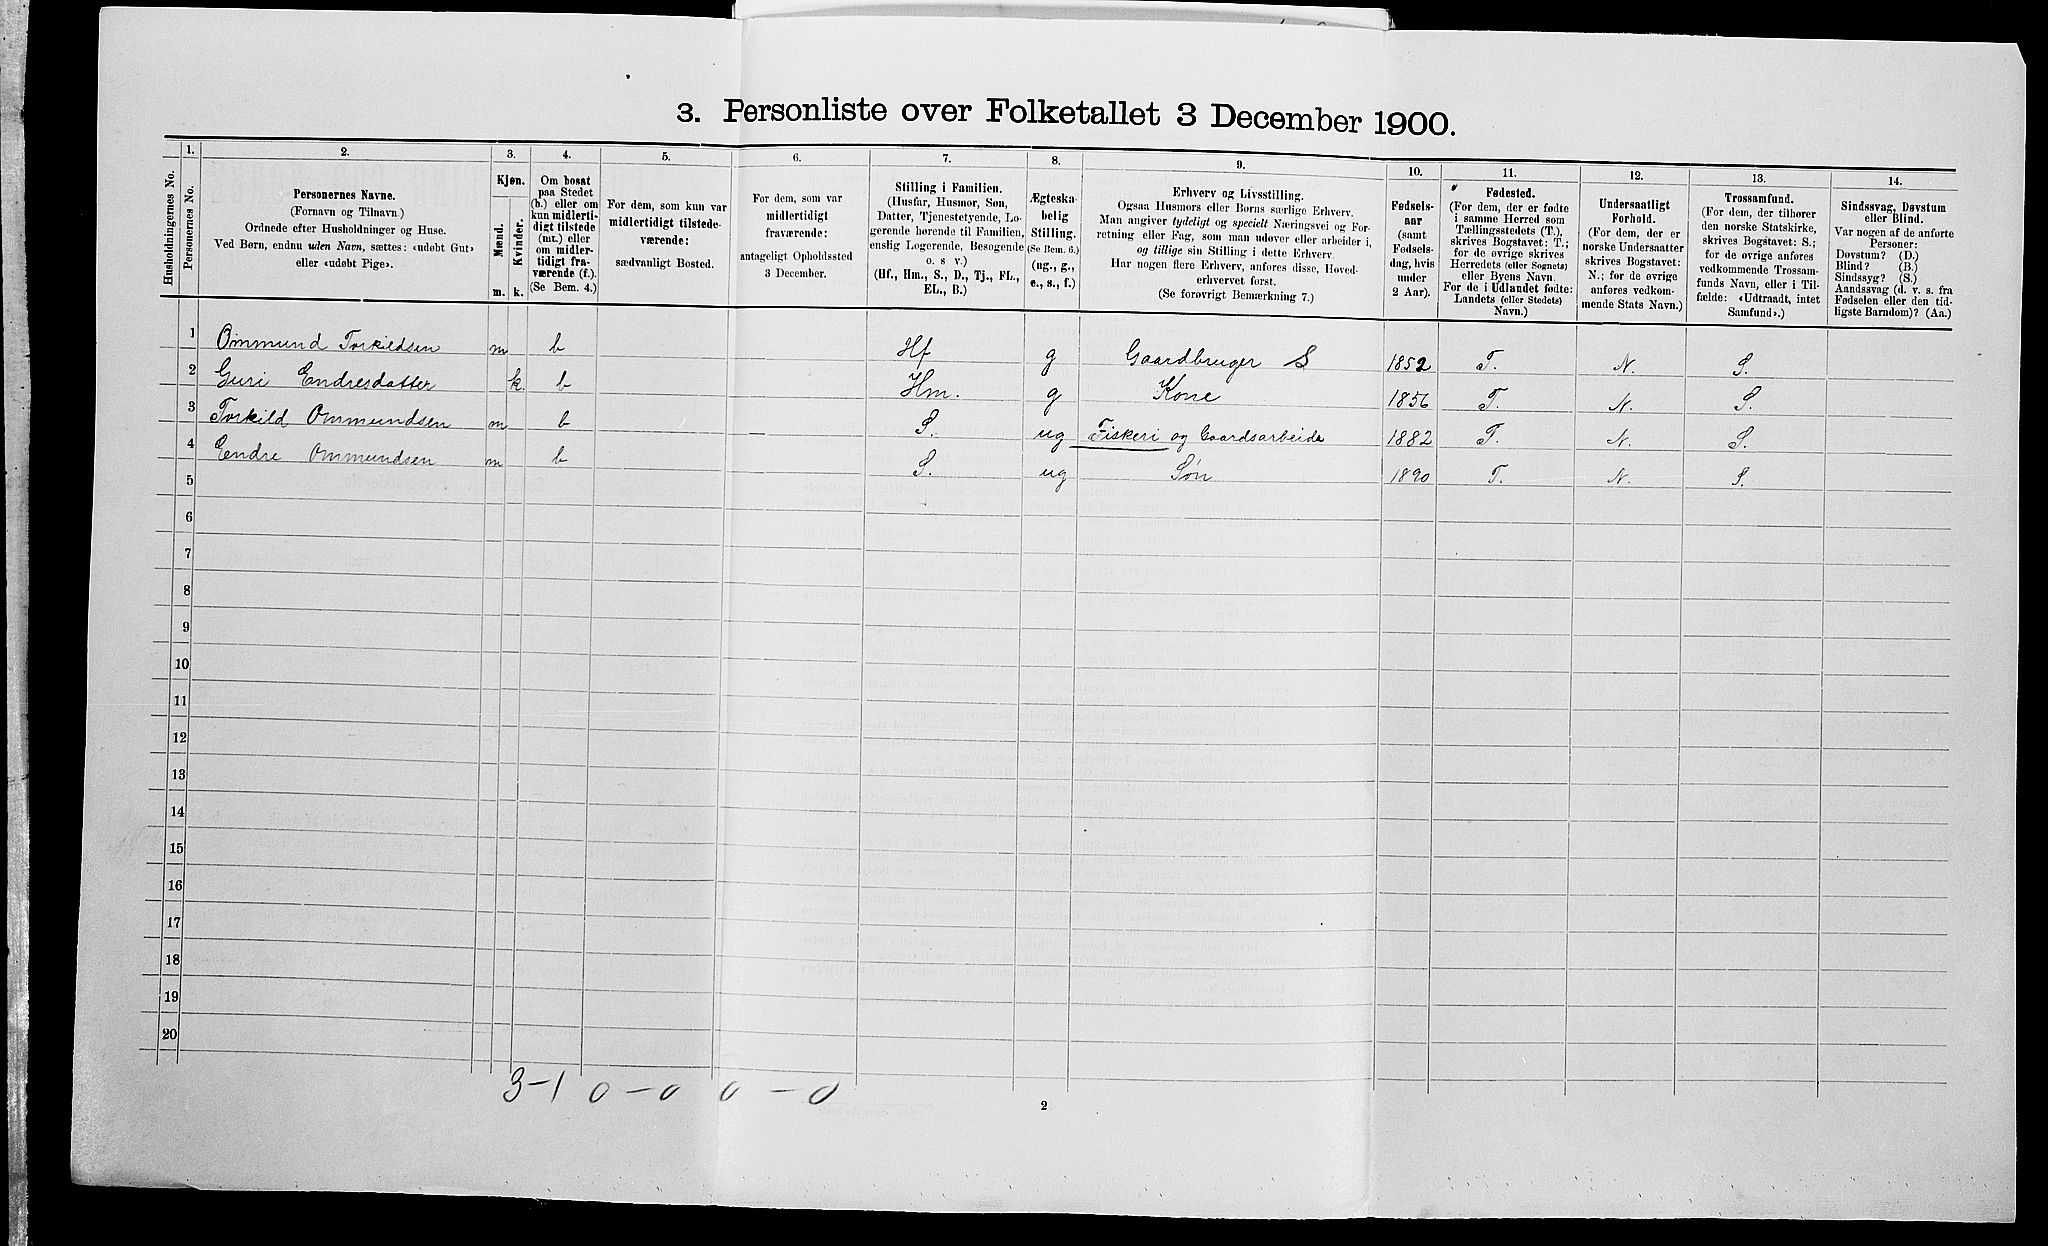 3. Personliste over Folketallet 3 December 1900.
1. 2. 3. 4. 5. 6. 7. 8. 9. 10. 11. 12. 13. 14.
Husholdningernes No.
Personernes No.
Personernes Navne.
(Fornavn og Tilnavn.)
Ordnede efter Husholdninger og Huse.
Ved Børn, endnu uden Navn, sættes: «udøbt Gut»
eller «udøbt Pige».
Kjøn.
Mænd.
Kvinder.
m. k.
Om bosat
paa Stedet
(b.) eller om
kun midlerti-
digt tilstede
(mt.) eller
om midler-
tidigt fra-
værende (f.).
(Se Bem. 4.)
For dem, som kun var
midlertidigt tilstede-
værende:
sædvanligt Bosted.
For dem, som var
midlertidigt
fraværende:
antageligt Opholdssted
3 December.
Stilling i Familien.
(Husfar, Husmor, Søn,
Datter, Tjenestetyende, Lo-
gerende hørende til Familien,
enslig Logerende, Besøgende
o. s v.)
(Hf., Hm., S., D., Tj., FL.,
EL., B.)
Ægteska-
belig
Stilling.
(Se Bem. 6.)
(ug., g.,
e., s., f.)
Erhverv og Livsstilling.
Ogsaa Husmors eller Børns særlige Erhverv.
Man angiver tydeligt og specielt Næringsvei og For-
retning eller Fag, som man udøver eller arbeider i,
og tillige sin Stilling i dette Erhverv.
Har nogen flere Erhverv, anføres disse, Hoved-
erhvervet først.
(Se forøvrigt Bemærkning 7.)
Fødsels-
aar
(samt
Fødsels-
dag, hvis
under
2 Aar).
Fødested.
(For dem, der er fødte
i samme Herred som
Tællingsstedets (T.),
skrives Bogstavet: T.;
for de øvrige skrives
Herredets (eller Sognets)
eller Byens Navn.
For de i Udlandet fødte:
Landets (eller Stedets)
Navn.)
Undersaatligt
Forhold.
(For dem, der er
norske Undersaatter
skrives Bogstavet:
N.; for de øvrige
anføres vedkom-
mende Stats Navn.)
Trossamfund.
(For dem, der tilhører
den norske Statskirke,
skrives Bogstavet: S.;
for de øvrige anføres
vedkommende Trossam-
funds Navn, eller i Til-
fælde: «Udtraadt, intet
Samfund».)
Sindssvag, Døvstum
eller Blind.
Var nogen af de anførte
Personer:
Døvstum? (D.)
Blind? (B.)
Sindssyg? (S.)
Aandssvag (d. v. s. fra
Fødselen eller den tid-
ligste Barndom)? (Aa.)
1 Ommund Torkildsen m b Hf g Gaardbruger S 1852 T. N. S.
2 Guri Endresdatter k. b Hm. g Kone 1856 T. N. S.
3 Torkild Ommundsen m b S. ug Fiskeri og Gaardsarbeide 1882 T. N. S.
4 Endre Ommundsen m b S. ug Søn 1890 T. N. S.
5
6
7
8
9
10
11
12
13
14
15
16
17
18
19
20
3-1 0-0 0-0
2